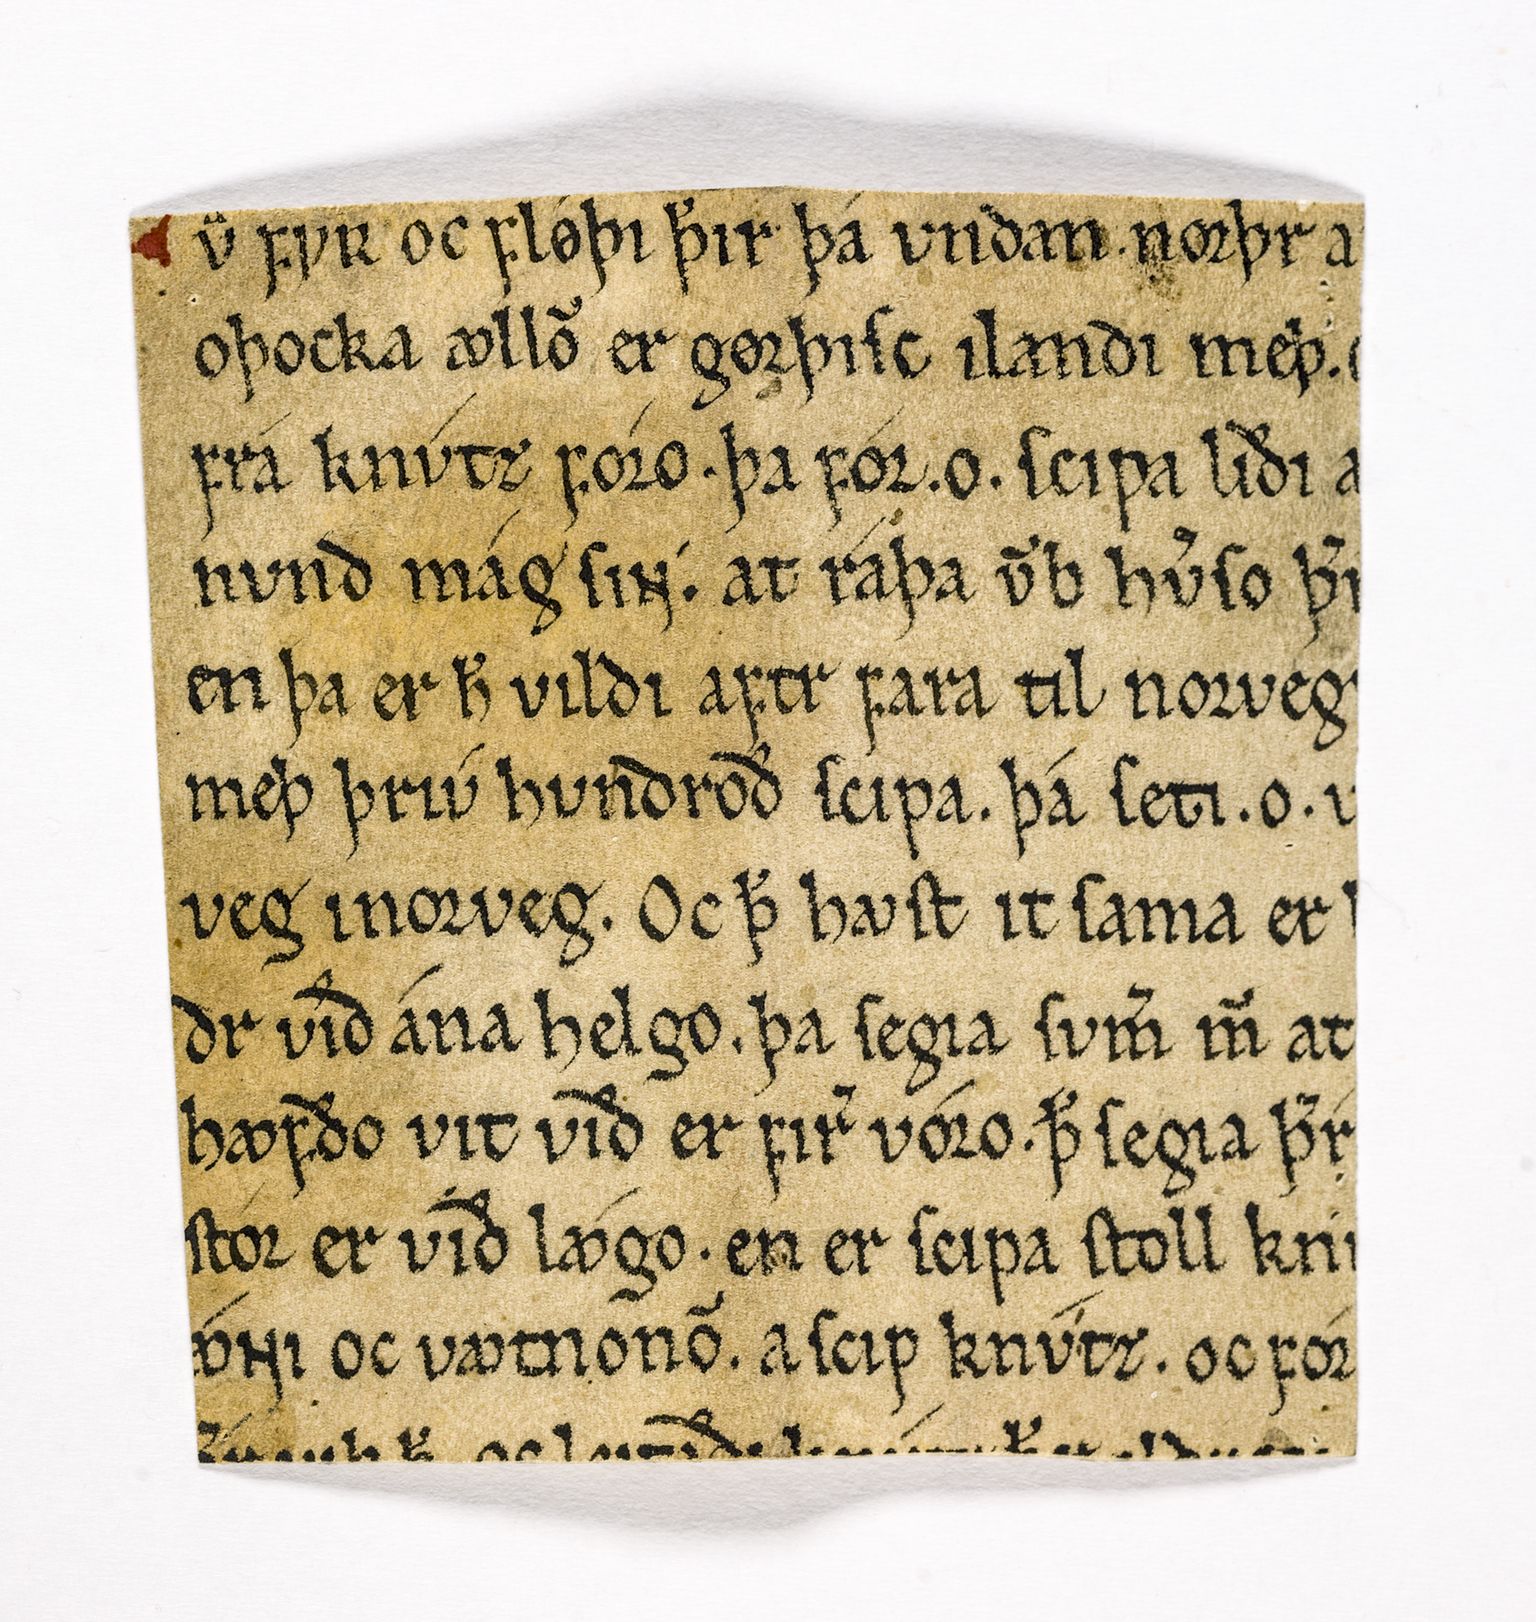 v̈ fyʀ oc flǿþi þ̄ir þá undan. norþr a
oþocka ꜹllō er gorþisc ilandi meþ.
frá knútr fóro. þa fór. o. scipa liði a
nvnd mág siɴ. at ráþa v̄b hv̄so
en þa er h̄ vildi aftr fara til norveg
meþ þriú hvndroð scipa. þá seti. o. v
veg inorveg. Oc þ̄ hꜹst it sama er
dr við ána helgo. þa segia svm̄ m̄ at
hꜹfðo vit við er fir̄ vóro. þ̄ segia þ̄r
stór er við lꜹ́go. en er scipa stoll kn
ꜹ́ɴi oc vꜹtnonō. a scip knútr. oc fór